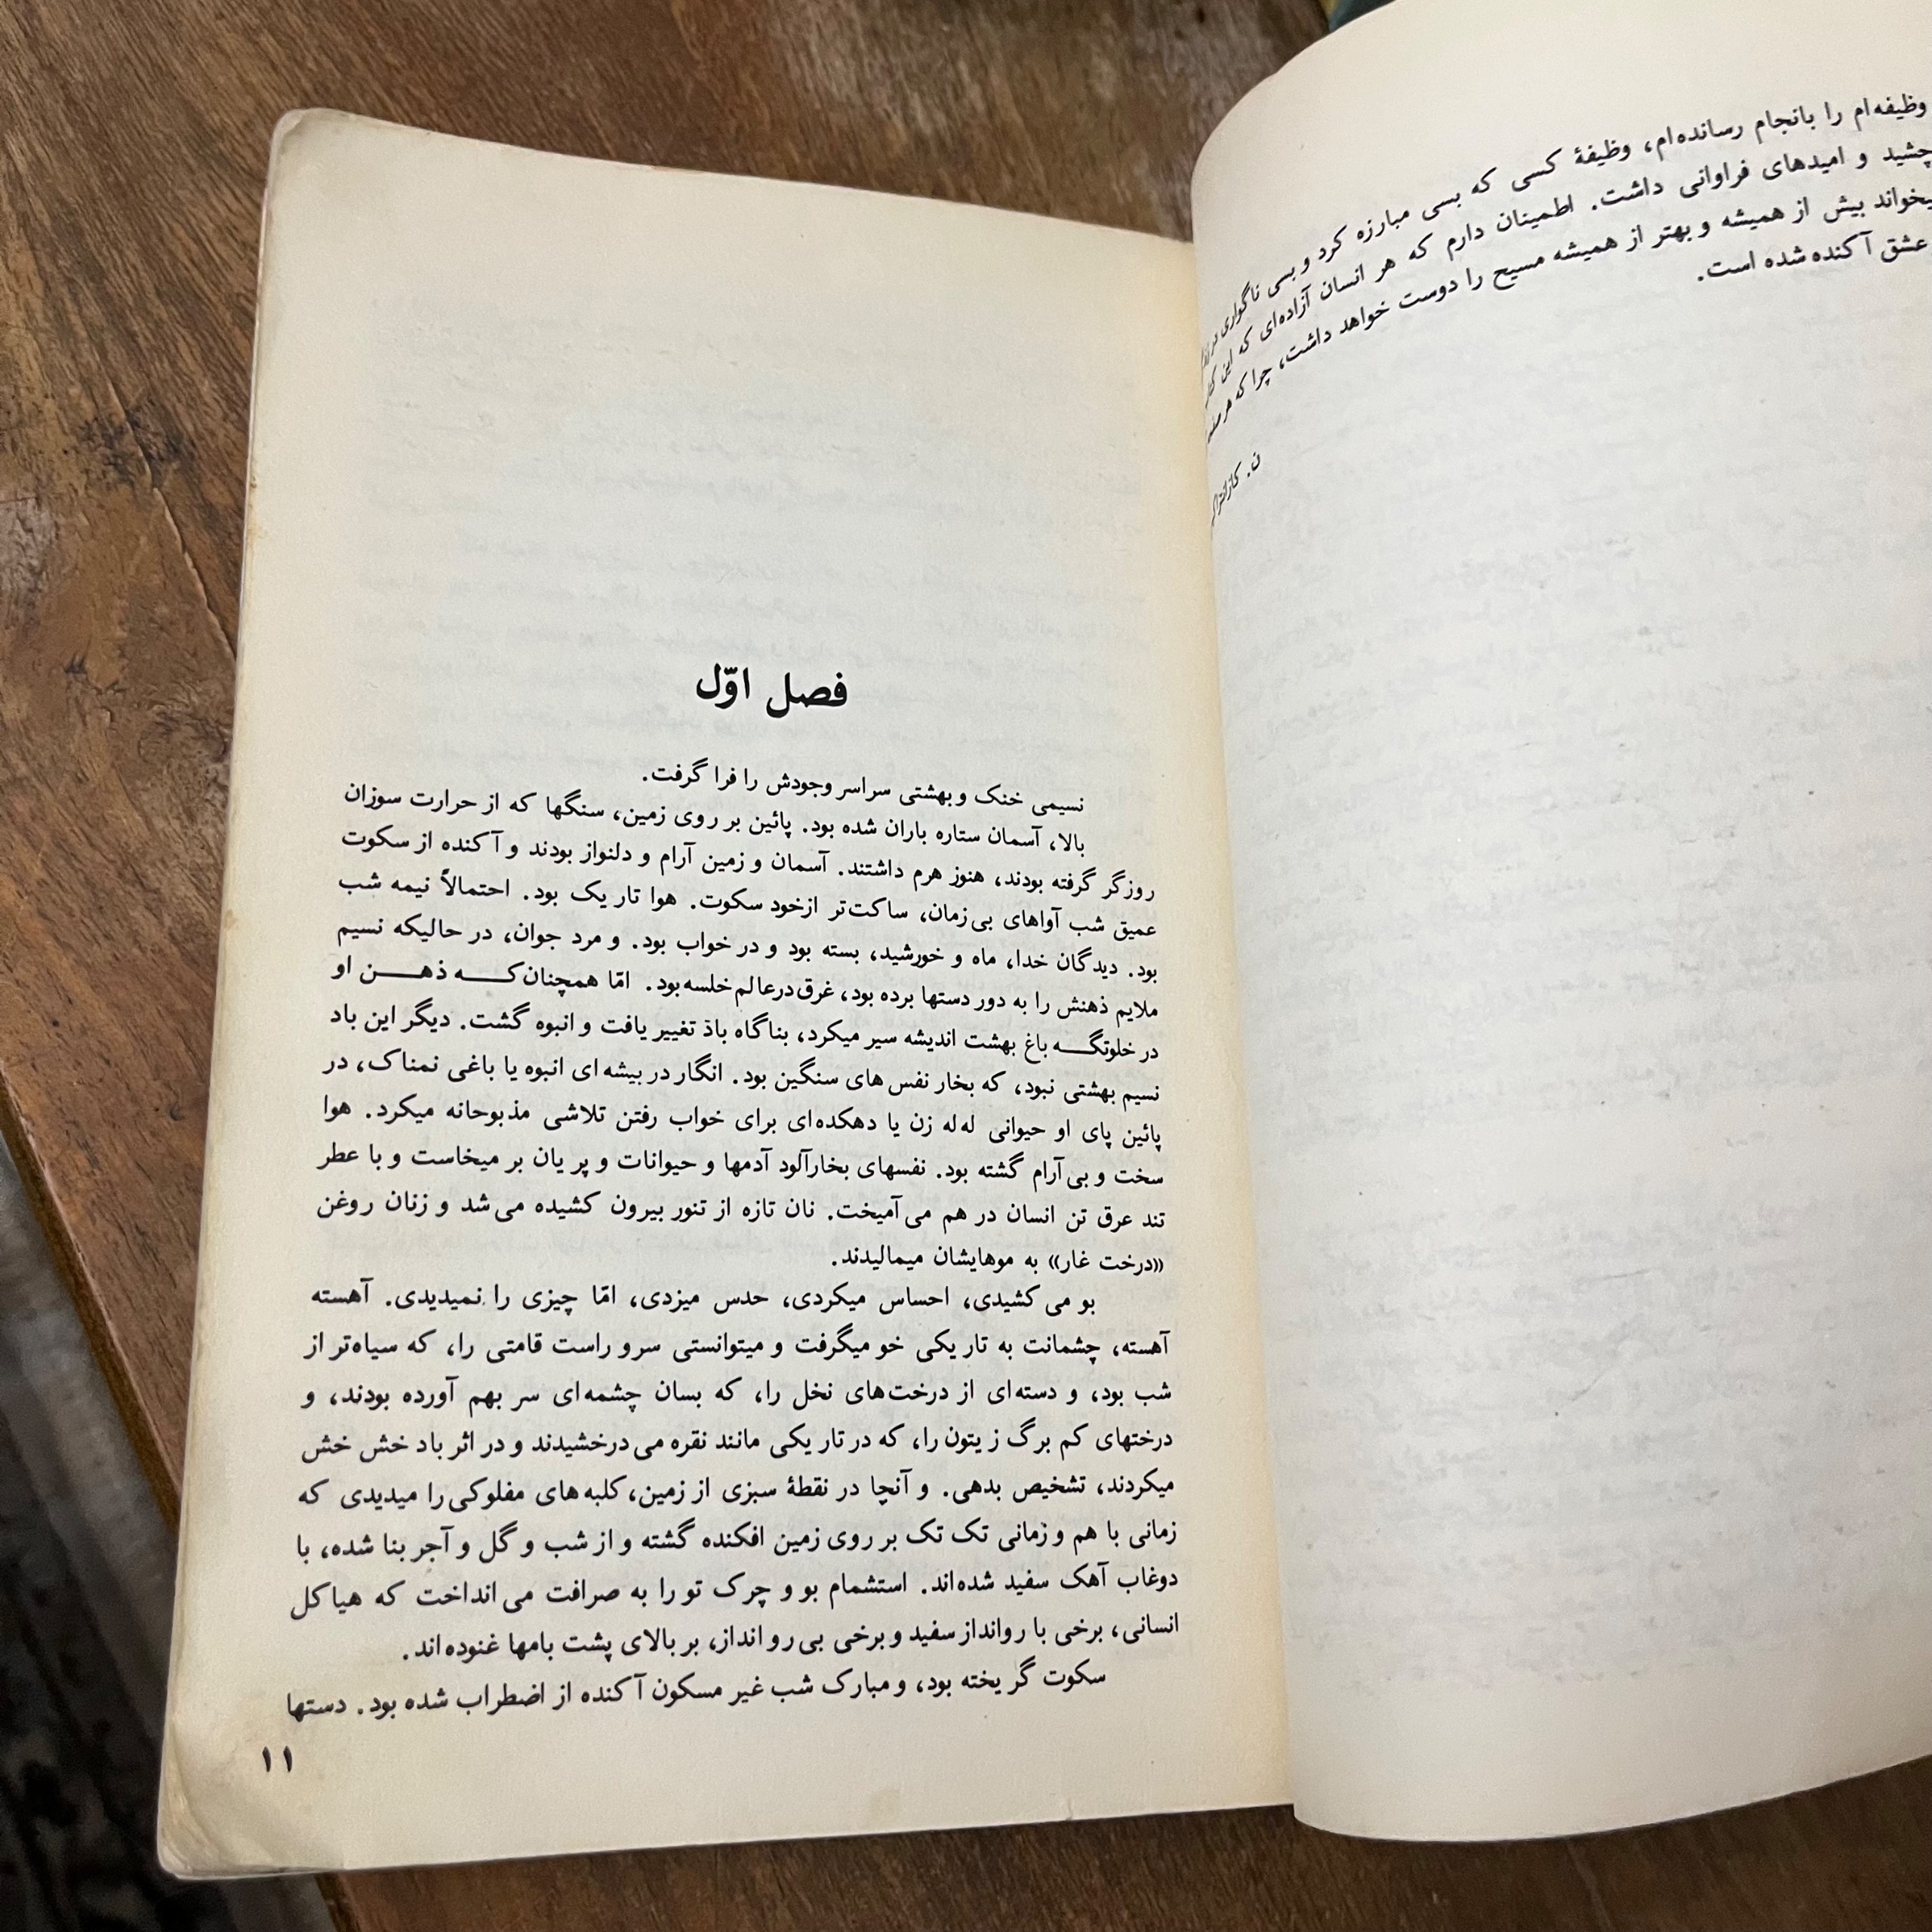 وظیفه‌ام را بانجام رسانده‌ام، وظیفهٔ کسی که بسی مبارزه کرد و بسی ناگواری
چشید و امیدهای فراوانی داشت. اطمینان دارم که هر انسان آزاده‌ای که این
بخواند بیش از همیشه و بهتر از همیشه مسیح را دوست خواهد داشت، چرا که هر
عشق آکنده شده است.
ن.
فصل اوّل
نسیمی خنک و بهشتی سراسر وجودش را فرا گرفت.
بالا، آسمان ستاره باران شده بود. پائین بر روی زمین، سنگها که از حرارت سوزان
روزگر گرفته بودند، هنوز هرم داشتند. آسمان و زمین آرام و دلنواز بودند و آکنده از سکوت
عمیق شب آواهای بی‌زمان، ساکت‌تر ازخود سکوت. هوا تاریک بود. احتمالاً نیمه شب
بود. دیدگان خدا، ماه و خورشید، بسته بود و در خواب بود. و مرد جوان، در حالیکه نسیم
ملایم ذهنش را به دور دستها برده بود، غرق درعالم خلسه بود. امّا همچنان که ذهن او
در خلوتگه باغ بهشت اندیشه سیر میکرد، بناگاه باد تغییر یافت و انبوه گشت. دیگر این باد
نسیم بهشتی نبود، که بخار نفس های سنگین بود. انگار در بیشه ای انبوه یا باغی نمناک، در
پائین پای او حیوانی له له زن یا دهکده‌ای برای خواب رفتن تلاشی مذبوحانه میکرد. هوا
سخت و بی آرام گشته بود. نفسهای بخارآلود آدمها و حیوانات و پریان بر میخاست و با عطر
تند عرق تن انسان در هم می آمیخت. نان تازه از تنور بیرون کشیده می شد و زنان روغن
«درخت غار» به موهایشان میمالیدند.
بو می کشیدی، احساس میکردی، حدس میزدی، امّا چیزی را نمیدیدی. آهسته
آهسته، چشمانت به تاریکی خو میگرفت و میتوانستی سرو راست قامتی را، که سیاه‌تر از
شب بود، و دسته‌ای از درخت‌های نخل را، که بسان چشمه‌ای سر بهم آورده بودند، و
درختهای کم برگ زیتون را، که در تاریکی مانند نقره می درخشیدند و در اثر باد خش خش
میکردند، تشخیص بدهی. و آنجا در نقطهٔ سبزی از زمین، کلبه های مفلوکی را میدیدی که
زمانی با هم و زمانی تک تک بر روی زمین افکنده گشته و از شب و گل و آجر بنا شده، با
دوغاب آهک سفید شده‌اند. استشمام بو و چرک تو را به صرافت می انداخت که هیاکل
انسانی، برخی با روانداز سفید و برخی بی رو انداز، بر بالای پشت بامها غنوده اند.
سکوت گریخته بود، و مبارک شب غیر مسکون آکنده از اضطراب شده بود. دستها
۱۱